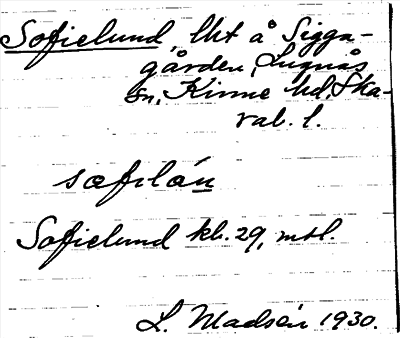 Sofielund, lht å Sigga-
gården, Lugnås
sn, Kinne hd, Ska-
rab. l.
sofilún
Sofielund kb. 29, mtl.
L. Madsén 1930.